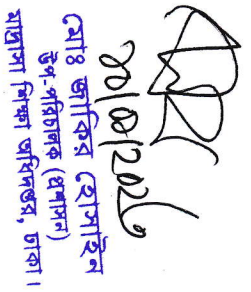 ২০/০৫/2026
মোঃ জাকির হোসাইন
উপ-পরিচালক (প্রশাসন)
মাদ্রাসা শিক্ষা অধিদপ্তর, ঢাকা।